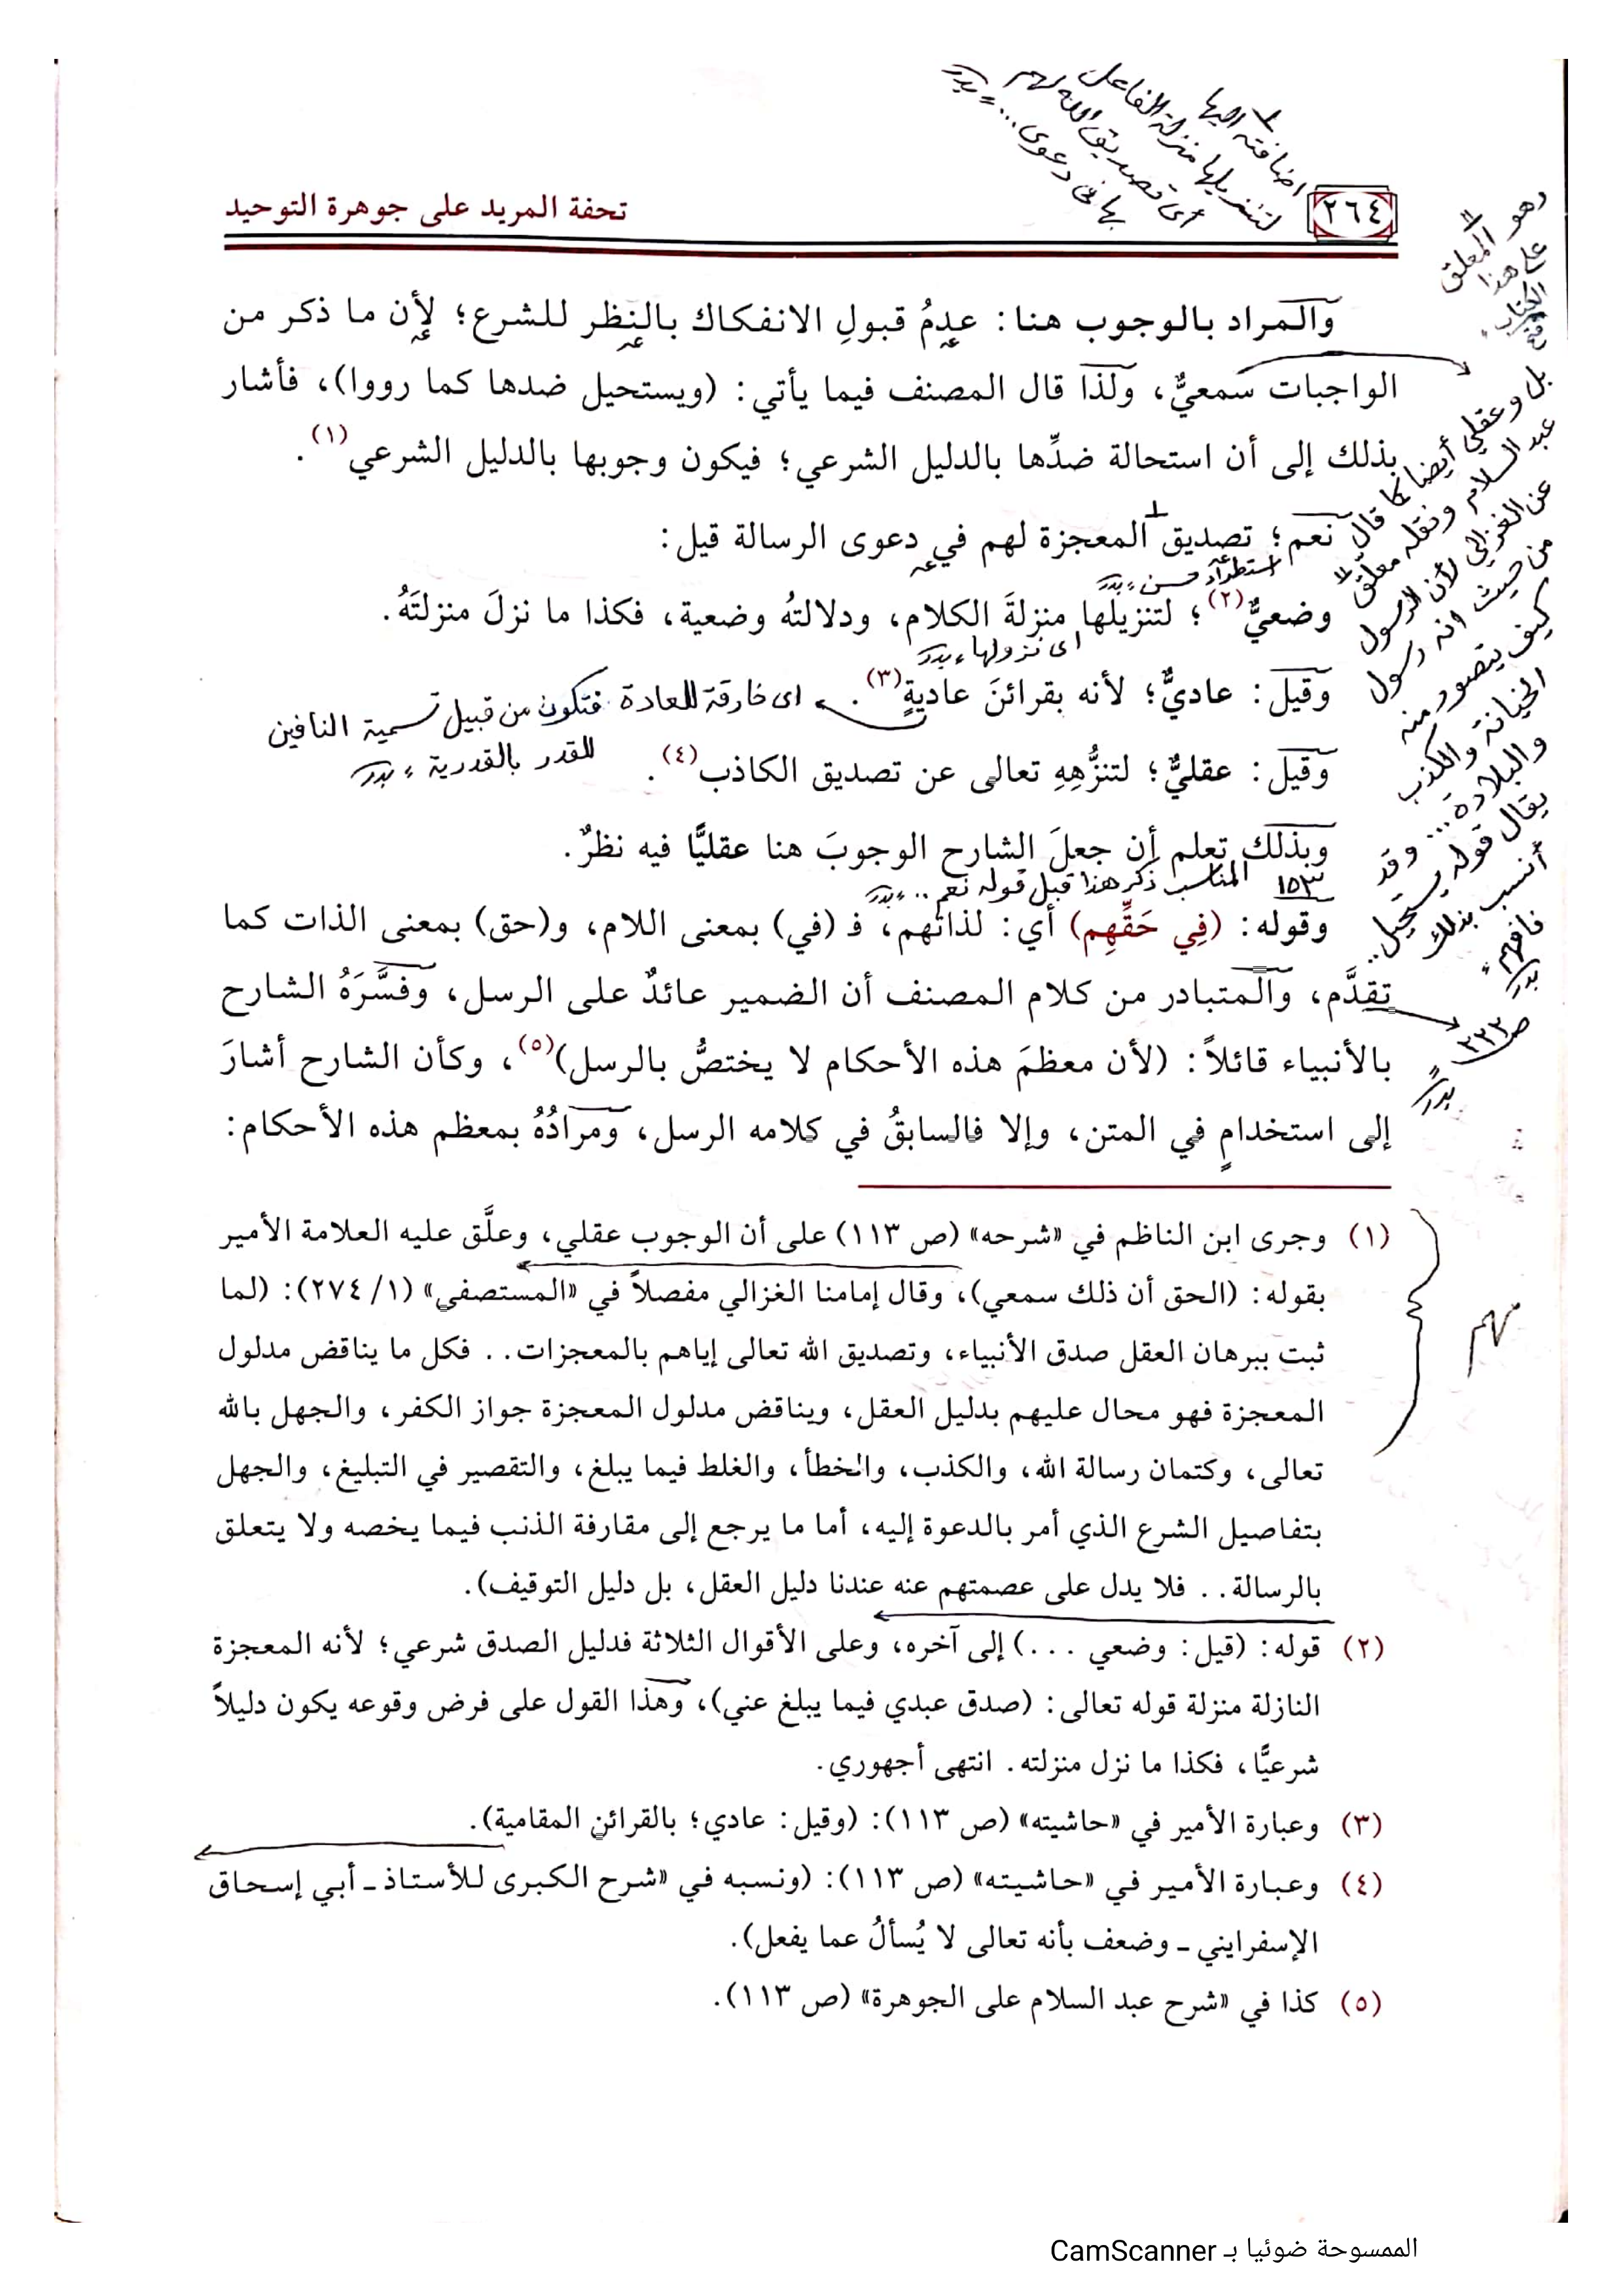 اضافته اليها
لتنزيلها منزلة الفاعل
أي تصديق الله لهم
بها في دعوى... = بدر
٢٦٤
تحفة المريد على جوهرة التوحيد
وهو المعلق
على هذا
الكتاب
والمراد بالوجوب هنا: عدمُ قبولِ الانفكاك بالنظر للشرع؛ لأن ما ذكر من
الواجبات سمعيٌّ، ولذا قال المصنف فيما يأتي: (ويستحيل ضدها كما رووا)، فأشار
بذلك إلى أن استحالة ضدِّها بالدليل الشرعي؛ فيكون وجوبها بالدليل الشرعي(١).
نعم؛ تصديق المعجزة لهم في دعوى الرسالة قيل:
استطراد حسن ، بدر
وضعيٌّ(٢)؛ لتنزيلها منزلةَ الكلام، ودلالتهُ وضعية، فكذا ما نزلَ منزلتَهُ.
اى نزولها ، بدر
وقيل: عاديٌّ؛ لأنه بقرائنَ عاديةٍ(٣).
اى خارقة للعادة فتكون من قبيل تسمية النافين
للقدر بالقدرية ، بدر
وقيل: عقليٌّ؛ لتنزُّهِهِ تعالى عن تصديق الكاذب(٤).
وبذلك تعلم أن جعلَ الشارح الوجوبَ هنا عقليًّا فيه نظرٌ.
١٥٣ المناسب ذكر هذا قبل قوله نعم .. ، بدر
وقوله: (فِي حَقِّهِم) أي: لذاتهم، فـ (في) بمعنى اللام، و(حق) بمعنى الذات كما
تقدَّم، والمتبادر من كلام المصنف أن الضمير عائدٌ على الرسل، وفسَّرَهُ الشارح
بالأنبياء قائلاً: (لأن معظمَ هذه الأحكام لا يختصُّ بالرسل)(٥)، وكأن الشارح أشارَ
إلى استخدامٍ في المتن، وإلا فالسابقُ في كلامه الرسل، ومرادُهُ بمعظم هذه الأحكام:
بل وعقلي أيضا كما قال
عبد السلام ونقله معلّق
عن الغزالي لأن الرسول
من حيث انه رسول
كيف يتصور منه
الخيانة والكذب
والبلادة... وقد
يقال قوله يستحيل..
أنسب بذلك
فافهم ،
بدر
ص ٢٢٢
بدر
(١) وجرى ابن الناظم في «شرحه» (ص ١١٣) على أن الوجوب عقلي، وعلَّق عليه العلامة الأمير
بقوله: (الحق أن ذلك سمعي)، وقال إمامنا الغزالي مفصلاً في «المستصفى» (١/ ٢٧٤): (لما
ثبت ببرهان العقل صدق الأنبياء، وتصديق الله تعالى إياهم بالمعجزات.. فكل ما يناقض مدلول
المعجزة فهو محال عليهم بدليل العقل، ويناقض مدلول المعجزة جواز الكفر، والجهل بالله
تعالى، وكتمان رسالة الله، والكذب، والخطأ، والغلط فيما يبلغ، والتقصير في التبليغ، والجهل
بتفاصيل الشرع الذي أمر بالدعوة إليه، أما ما يرجع إلى مقارفة الذنب فيما يخصه ولا يتعلق
بالرسالة.. فلا يدل على عصمتهم عنه عندنا دليل العقل، بل دليل التوقيف).
مهم
(٢) قوله: (قيل: وضعي ...) إلى آخره، وعلى الأقوال الثلاثة فدليل الصدق شرعي؛ لأنه المعجزة
النازلة منزلة قوله تعالى: (صدق عبدي فيما يبلغ عني)، وهذا القول على فرض وقوعه يكون دليلاً
شرعيًّا، فكذا ما نزل منزلته. انتهى أجهوري.
(٣) وعبارة الأمير في «حاشيته» (ص ١١٣): (وقيل: عادي؛ بالقرائن المقامية).
(٤) وعبارة الأمير في «حاشيته» (ص ١١٣): (ونسبه في «شرح الكبرى للأستاذ ـ أبي إسحاق
الإسفرايني ـ وضعف بأنه تعالى لا يُسألُ عما يفعل).
(٥) كذا في «شرح عبد السلام على الجوهرة» (ص ١١٣).
الممسوحة ضوئيا بـ CamScanner